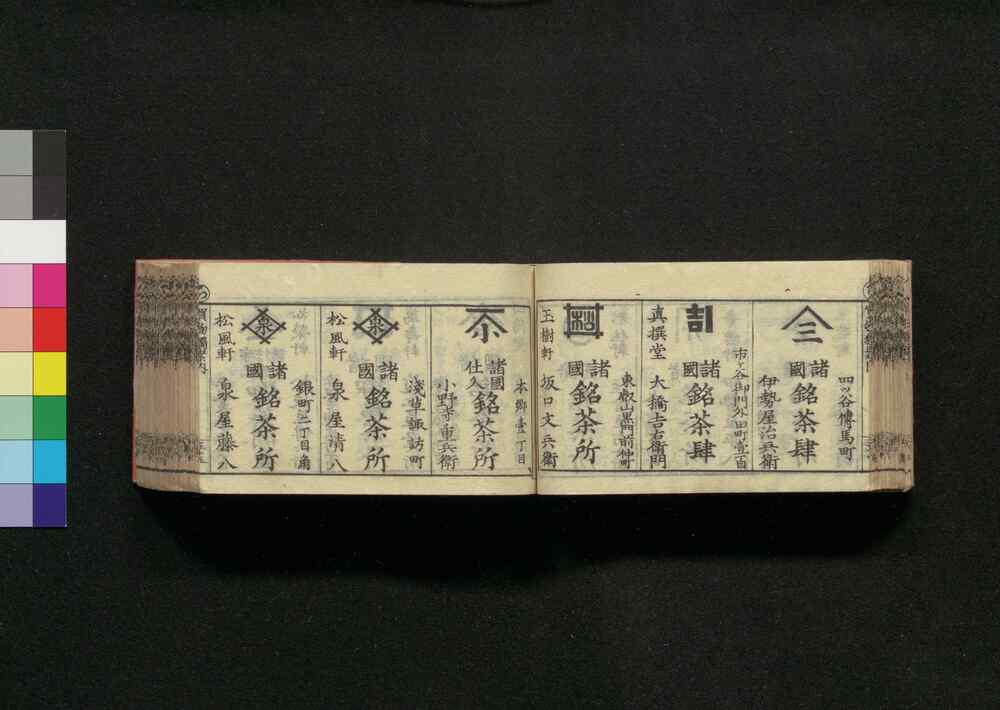 四ッ谷傳馬町
三
諸國銘茶肆
伊勢屋治兵衛
市ヶ谷御門外田町壹百
吉
諸國銘茶肆
真撰堂 大橋吉右衛門
東叡山黒門前仲町
諸國銘茶所
玉樹軒 坂口文兵衛
本郷壹丁目
諸國仕入銘茶所
小野市重兵衛
淺草諏訪町
泉
諸國銘茶所
松風軒 泉屋清八
銀町二丁目角
泉
諸國銘茶所
松風軒 泉屋藤八